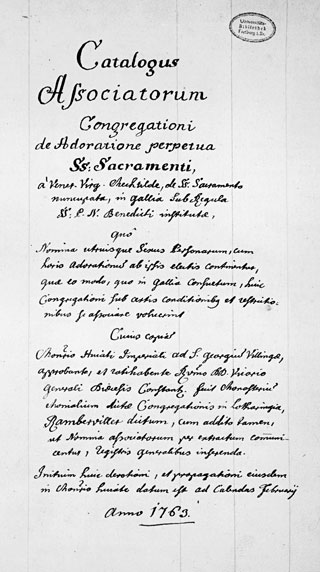 Universitäts-
Bibliothek
Freiburg i. Br.
Catalogus
Associatorum
Congregationi
de Adoratione perpetua
SS: Sacramenti,
à Vener. Virg. Mechtilde, de SS: Sacramento
nuncupata, in Gallia Sub Regula
SS: P. N. Benedicti institutæ,
quo
Nomina utriusque Sexus Personarum, cum
horis Adorationis ab ipsis electis continentur,
quæ eo modo, quo in Gallia consuetum, huic
Congregationi sub certis conditionibus et restrictio-
nibus se associare voluerint
Cuius copia
Monrio Huiati Imperiali ad S. Georgium Villingæ,
approbante, et ratihabente Rvmo DD. Vicario
Generali Diœcesis Constant: fuit Monasterium
monialium dictæ Congregationis in Lotharingia,
Rambervilles dictum, cum addito tamen,
ut Nomina associatorum per extractum communi-
centur, Registris generalibus inserenda.
Initium huic devotioni, et propagationi eiusdem
in Monrio huiate datum est ad Calendas Februarij
Anno 1763.